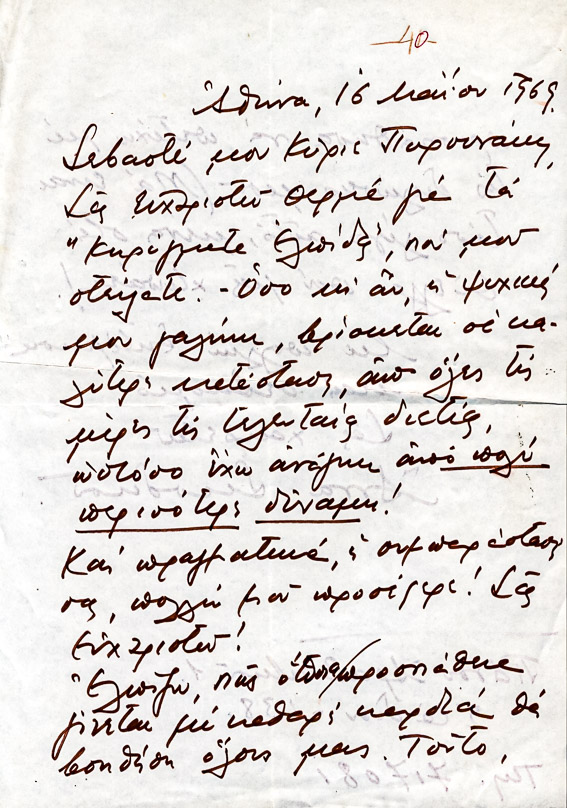 40
Ἀθήνα, 16 Μαΐου 1969.
Σεβαστέ μου Κύριε
Σᾶς εὐχαριστῶ θερμά γιά τά
"Κηρύγματα Ἐλπίδας", πού μου
στείλατε. - Ὅσο κι ἄν, ἡ ψυχική
μου γαλήνη, βρίσκεται σέ κα-
λύτερη κατάσταση, ἀπό ὅλες τίς
μέρες τῆς τελευταίας διετίας,
ὡστόσο ἔχω ἀνάγκη ἀπό πολύ
περισσότερη δύναμη!
Καί πραγματικά, ἡ συμπαράσταση
σας, πολλή μοῦ προσφέρει! Σᾶς
εὐχαριστῶ!
Ἐλπίζω, πώς ὅτι προσπάθεια
γίνεται μέ καθαρή καρδιά θά
βοηθήση ὅλους μας. Τοῦτο,